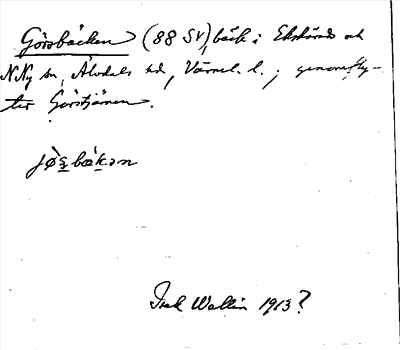 Görsbäcken (88 SV), bäck i Ekshärads och
N Ny sn, Älvdals hd, Värml. l.; genomfly-
ter Görstjärnen.
jø̀s̱bæ̀ḵən
Isak Wallin 1913?